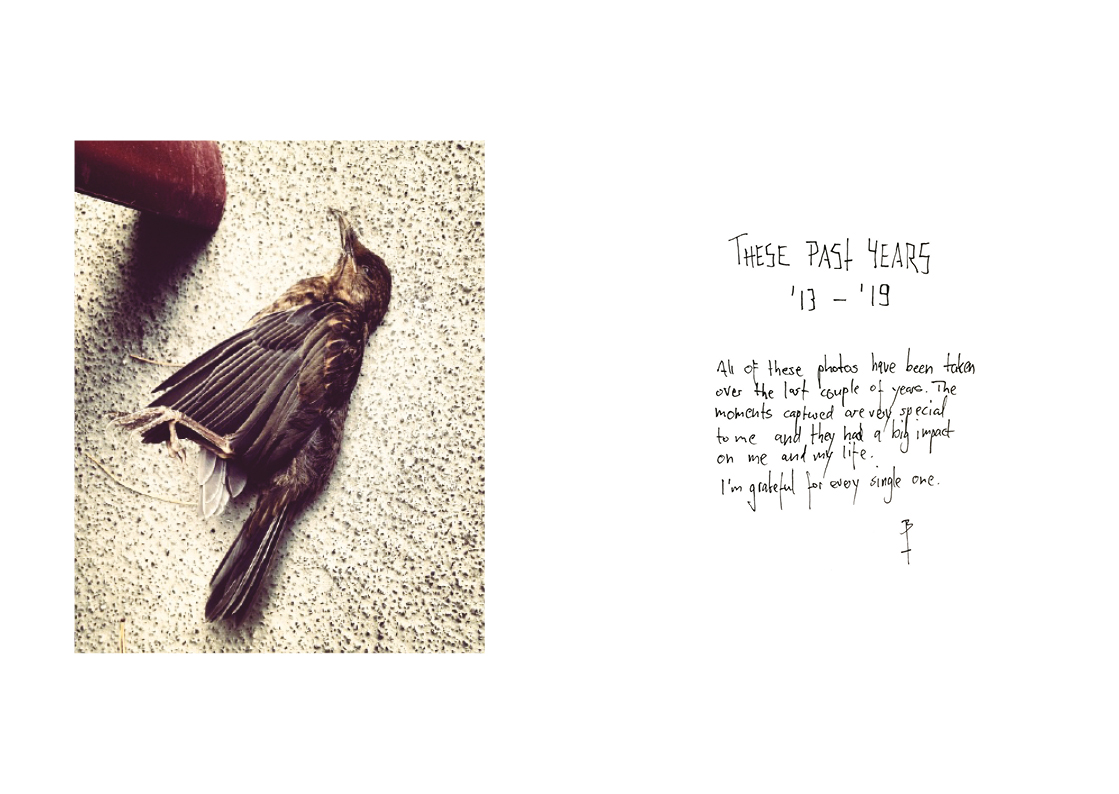 THESE PAST YEARS
'13 – '19
All of these photos have been taken
over the last couple of years. The
moments captured are very special
to me and they had a big impact
on me and my life.
I'm grateful for every single one.